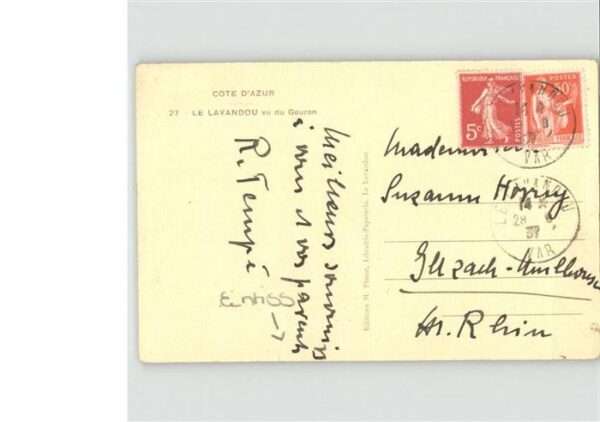 COTE D'AZUR
27 - LE LAVANDOU vu du Gouron
Meilleurs souvenirs
à vous et vos parents
R. Tempé
Editions M. Librairie-Papeterie, Le Lavandou
REPUBLIQUE FRANÇAISE
5c
POSTES
POSTES
VAR
LE LAVANDOU
28
37
VAR
Mademoiselle
Suzanne
Illzach-Mulhouse
Ht. Rhin